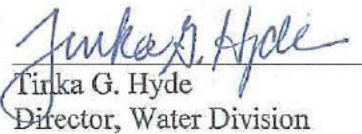 Tinka G. Hyde
Tinka G. Hyde
Director, Water Division